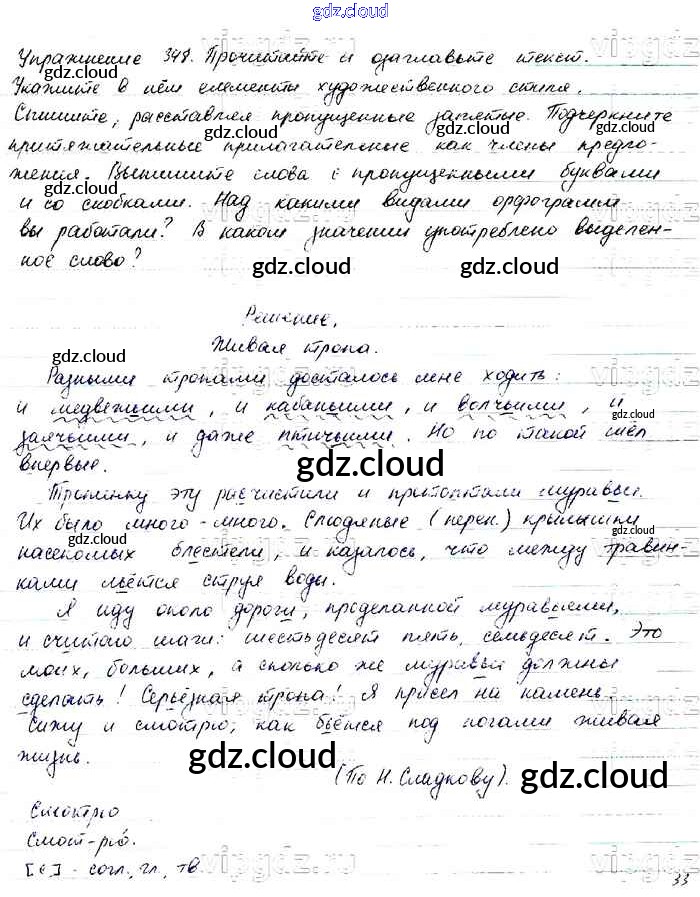 gdz.cloud
Упражнение 348. Прочитайте и озаглавьте текст.
Укажите в нём элементы художественного стиля.
Спишите, расставляя пропущенные запятые. Подчеркните
притяжательные прилагательные как члены предло-
жения. Выпишите слова с пропущенными буквами
и со скобками. Над какими видами орфограмм
вы работали? В каком значении употреблено выделен-
ное слово?
Решение.
Живая тропа.
Разными тропами досталось мне ходить:
и медвежьими, и кабаньими, и волчьими, и
заячьими, и даже птичьими. Но по такой шёл
впервые.
Тропинку эту расчистили и притоптали муравьи.
Их было много-много. Слюдяные (перен.) крылышки
насекомых блестели, и казалось, что между травин-
ками льётся струя воды.
Я иду около дороги, проделанной муравьями,
и считаю шаги: шестьдесят пять, семьдесят. Это
моих, больших, а сколько же муравьи должны
сделать! Серьёзная тропа! Я присел на камень.
Сижу и смотрю, как бьётся под ногами живая
жизнь.
(По Н. Сладкову).
Смотрю
Смот-рю.
[с] - согл., гл., тв.
33